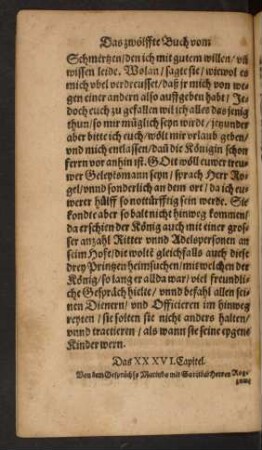 Das zwölffte Buch vom
Schmertzen/den ich mit gutem willen/ vñ
wissen leide. Wolan/ sagte sie/ wiewol es
mich vbel verdreusset/daß jr mich von we-
gen einer andern also auffgeben habt/ Je-
doch euch zu gefallen wil ich alles das jenig
thun/ so mir müglich seyn wirdt/ jtzunder
aber bitte ich euch/wölt mir vrlaub geben/
vnd mich entlassen/daũ die Königin schon
ferrn vor anhin ist. GOtt wöll euwer treu-
wer Geleytsmann seyn/ sprach Herr Ro-
gel/vnnd sonderlich an dem ort/ da ich eu-
werer hülff so notturfftig sein werde. Sie
kondte aber so balt nicht hinweg kommen/
da erschien der König auch mit einer gros-
ser anzahl Ritter vnnd Adelspersonen an
seim Hofe/die wolte gleichfalls auch diese
drey Printzen heimsuchen/mit welchen der
König/ so lang er allda war/ viel freundli-
che Gespräch hielte/ vnnd befahl allen sei-
nen Dienern/ vnd Officieren im hinweg
reyten/ sie solten sie nicht anders halten/
vnnd tractieren / als wann sie seine eygene
Kinder wern.
Das XXXVI. Capitel.
Von dem Gespräch so
mit
Herren Roge-